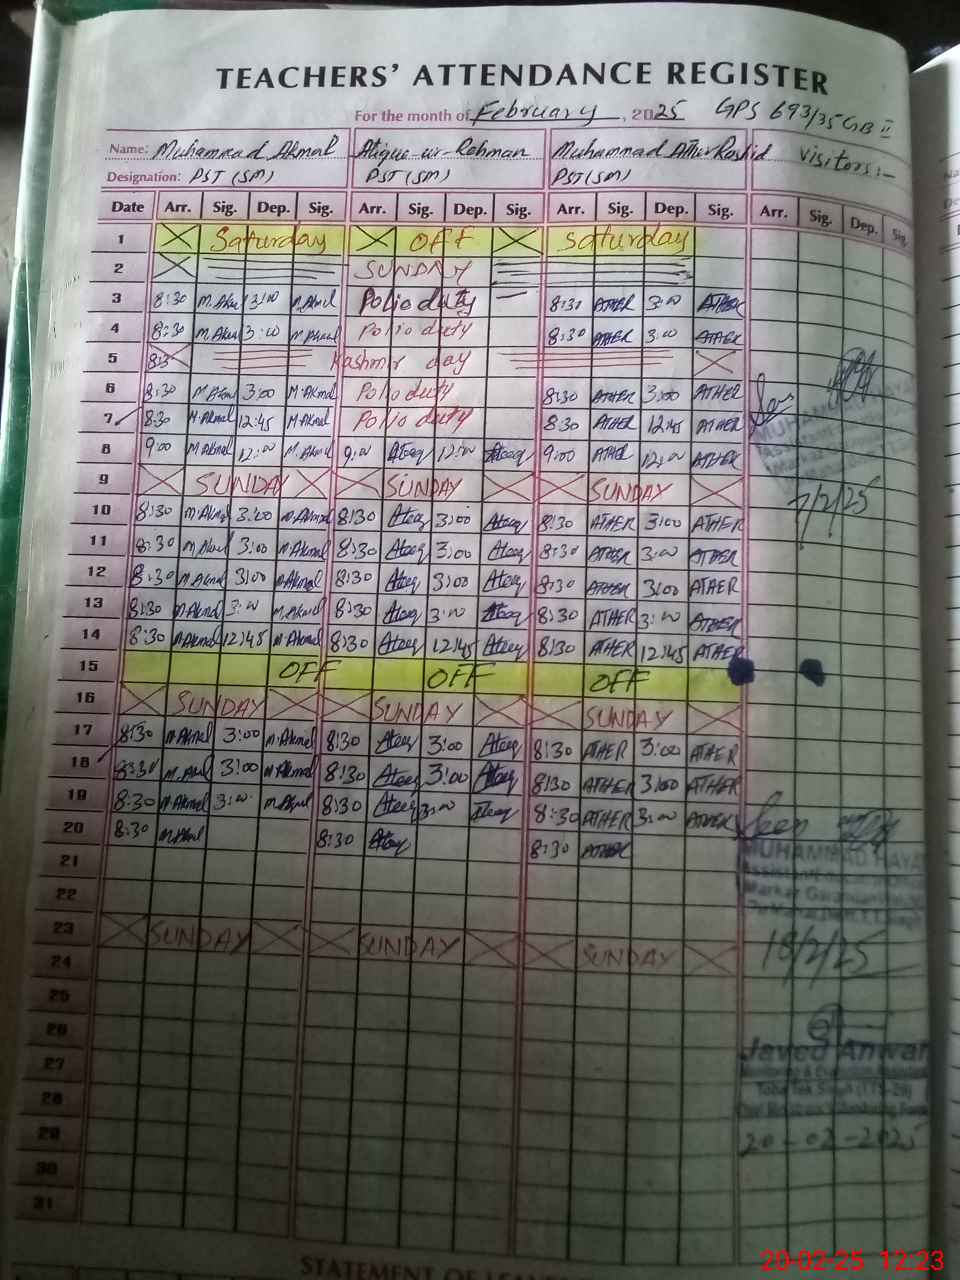 TEACHERS' ATTENDANCE REGISTER
For the month of February, 2025 GPS 693/35 GB II
Name: Muhammad Akmal Atique-ur-Rehman Muhammad Ather Rashid visitors:-
Designation: PST (SM) PST (SM) PST (SM)
Date Arr. Sig. Dep. Sig. Arr. Sig. Dep. Sig. Arr. Sig. Dep. Sig. Arr. Sig. Dep. Sig.
1 Saturday OFF Saturday
2 SUNDAY
3 8:30 M.Akmal 3:00 M.Akmal Polio duty 8:30 ATHER 3:00 ATHER
4 8:30 M.Akmal 3:00 M.Akmal Polio duty 8:30 ATHER 3:00 ATHER
5 Kashmir day
6 8:30 M.Akmal 3:00 M.Akmal Polio duty 8:30 ATHER 3:00 ATHER
7 8:30 M.Akmal 12:45 M.Akmal Polio duty 8:30 ATHER 12:45 ATHER
8 9:00 M.Akmal 12:00 M.Akmal 9:00 Ateeq 12:00 Ateeq 9:00 ATHER 12:00 ATHER
9 SUNDAY SUNDAY SUNDAY
7/2/25
10 8:30 M.Akmal 3:00 M.Akmal 8:30 Ateeq 3:00 Ateeq 8:30 ATHER 3:00 ATHER
11 8:30 M.Akmal 3:00 M.Akmal 8:30 Ateeq 3:00 Ateeq 8:30 ATHER 3:00 ATHER
12 8:30 M.Akmal 3:00 M.Akmal 8:30 Ateeq 3:00 Ateeq 8:30 ATHER 3:00 ATHER
13 8:30 M.Akmal 3:00 M.Akmal 8:30 Ateeq 3:00 Ateeq 8:30 ATHER 3:00 ATHER
14 8:30 M.Akmal 12:45 M.Akmal 8:30 Ateeq 12:45 Ateeq 8:30 ATHER 12:45 ATHER
15 OFF OFF OFF
16 SUNDAY SUNDAY SUNDAY
17 8:30 M.Akmal 3:00 M.Akmal 8:30 Ateeq 3:00 Ateeq 8:30 ATHER 3:00 ATHER
18 8:30 M.Akmal 3:00 M.Akmal 8:30 Ateeq 3:00 Ateeq 8:30 ATHER 3:00 ATHER
19 8:30 M.Akmal 3:00 M.Akmal 8:30 Ateeq 3:00 Ateeq 8:30 ATHER 3:00 ATHER
20 8:30 M.Akmal 8:30 Ateeq 8:30 ATHER
Seen
MUHAMMAD HAYAT
21
22
23 SUNDAY SUNDAY SUNDAY
18/2/25
24
25
26
Javed Anwar
27
28
29
20-02-2025
30
31
20-02-25 12:23